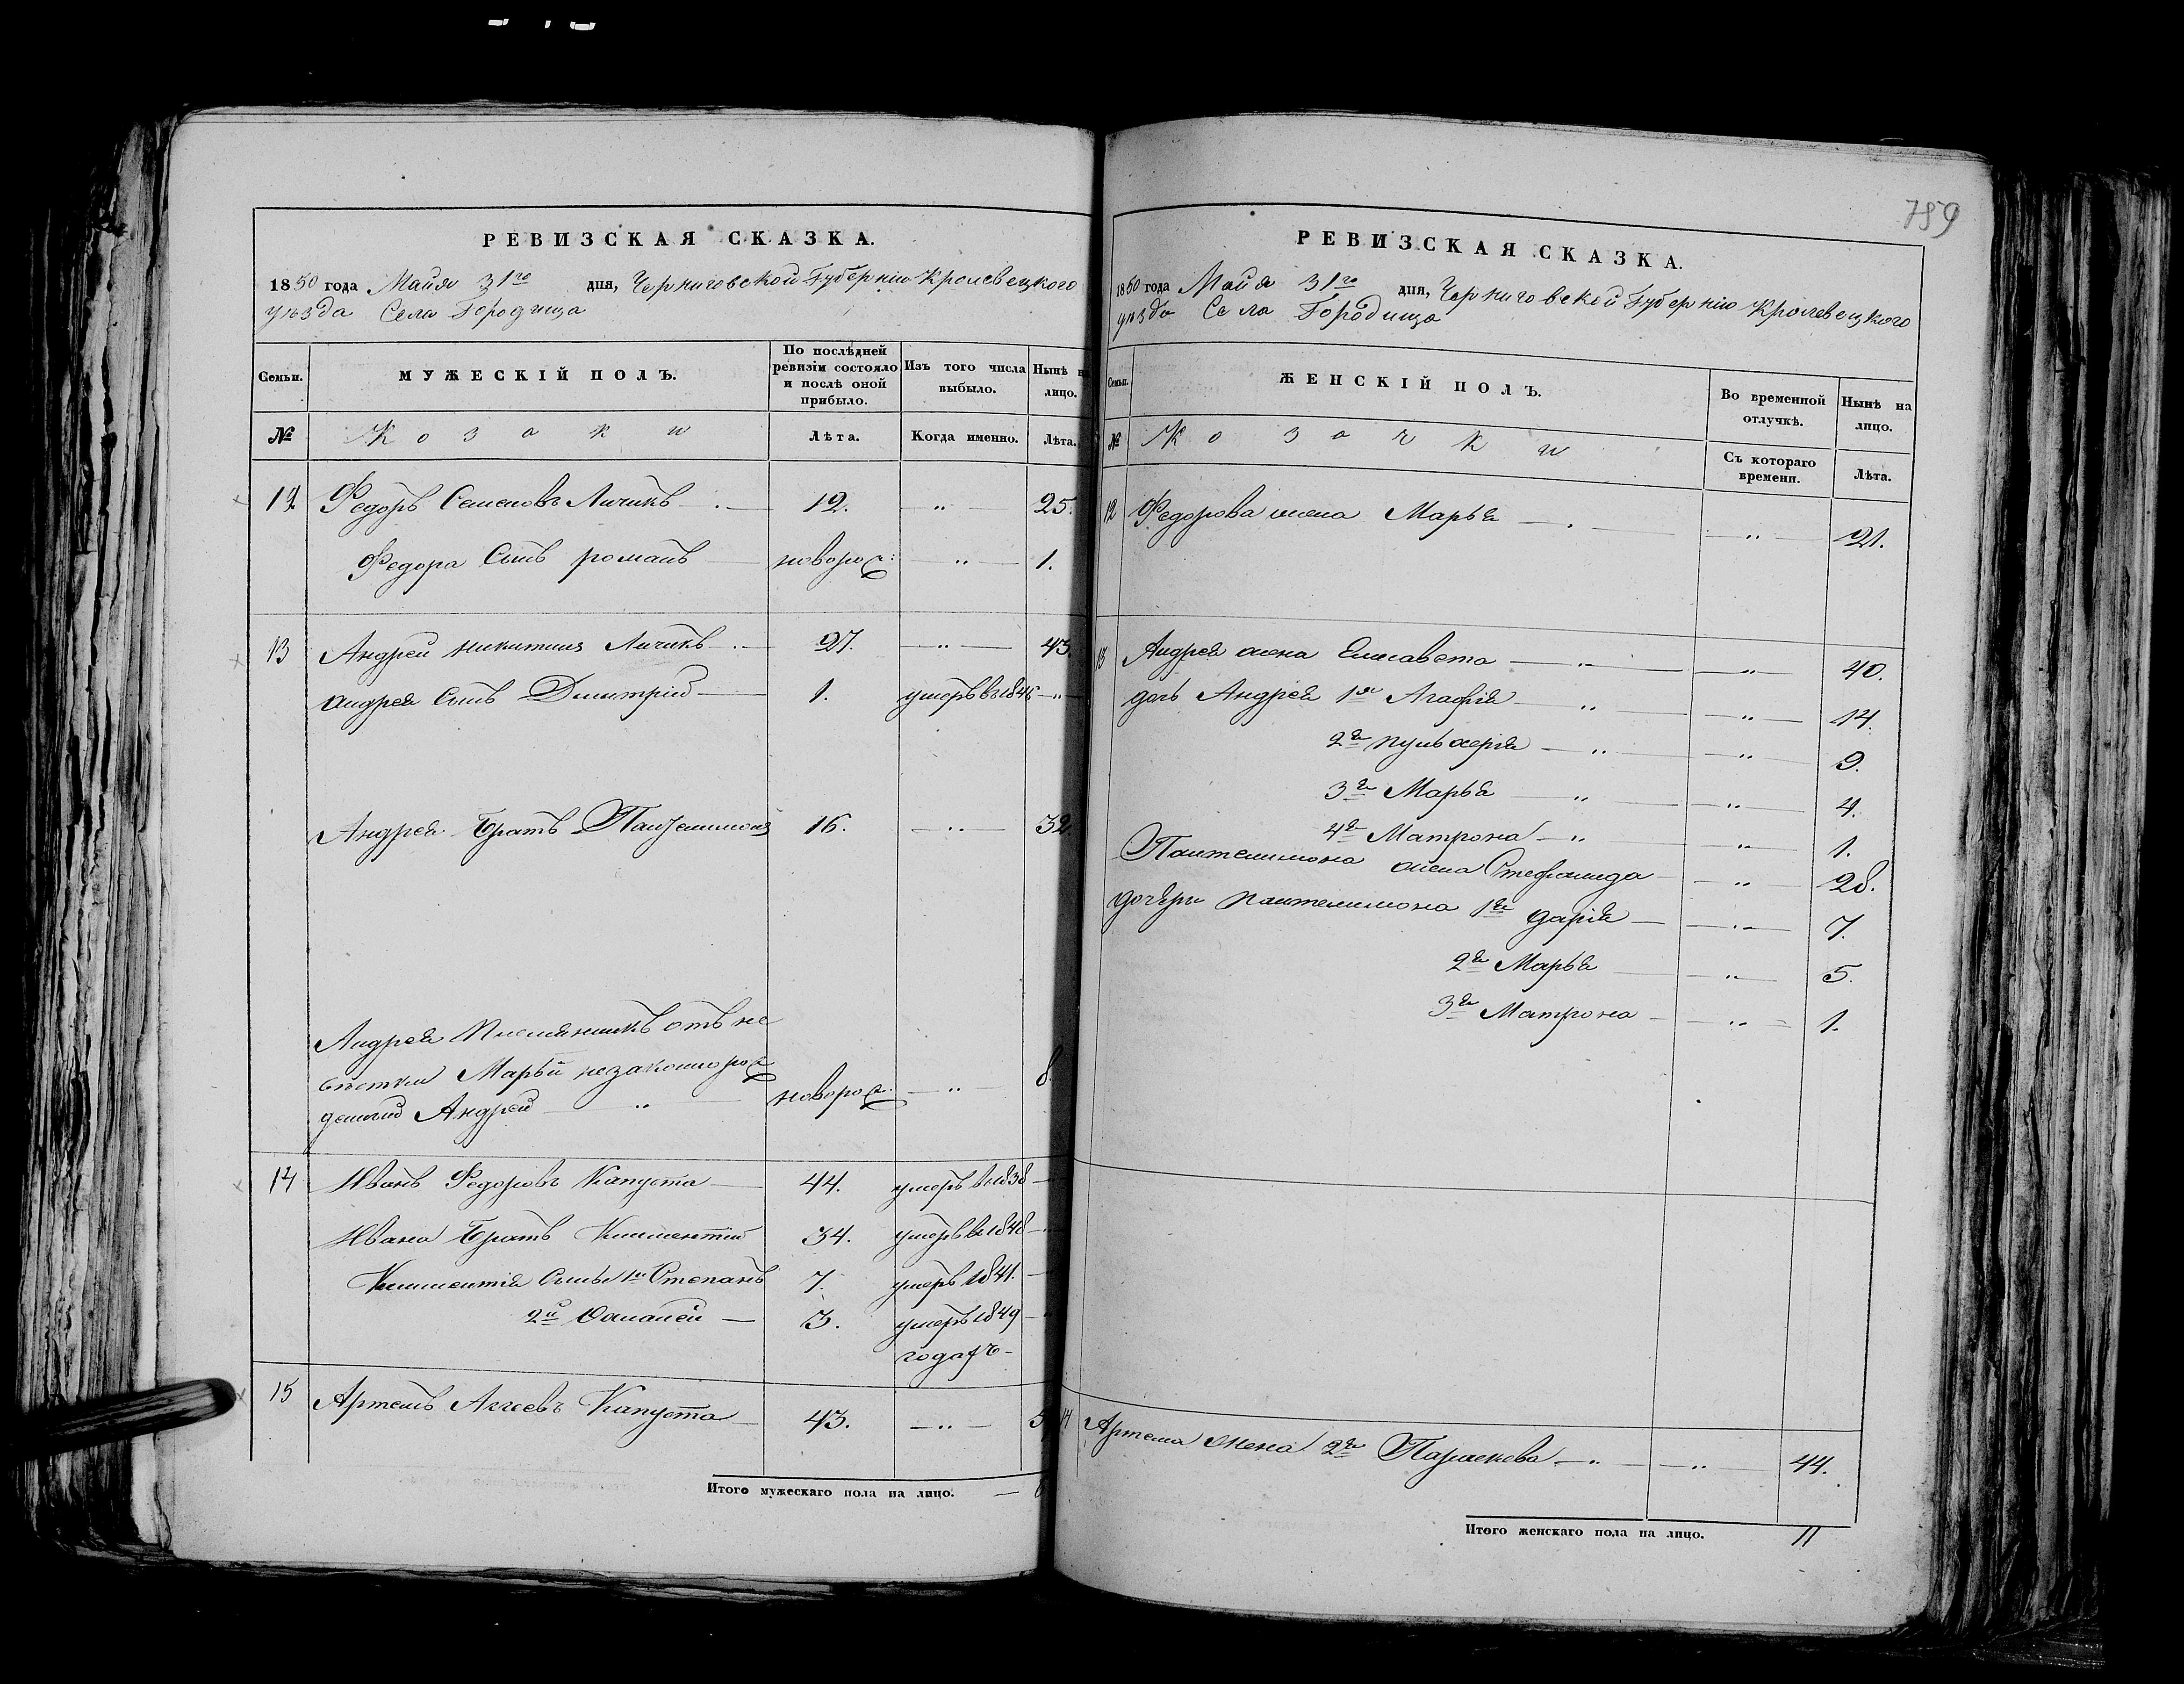 РЕВИЗСКАЯ СКАЗКА.
1850 года Майя 31го дня, Черниговской Губернiи Кролевецкого
уѣзда Села Городища
Семьи. МУЖЕСКІЙ ПОЛЪ. По послѣдней ревизіи состояло и послѣ оной прибыло. Изъ того числа выбыло. Нынѣ на лицо.
№ Козаки Лѣта. Когда именно. Лѣта.
12 Федоръ Семеновъ Личикъ 12. " 25.
Федора Сынъ романъ новорож: " 1.
13 Андрей никитинъ Личикъ 27. " 43.
андрея Сынъ Дмитрій 1. умеръ въ 1846 "
Андрея Братъ Пантелимонъ 16. " 32.
Андрея Племянникъ отъ не
вѣстки Марьи незаконнорож
денный Андрей " новорож. " 8.
14 Иванъ Федоровъ Капуста 44. умеръ в 1838
Ивана Братъ Климентій 34. умеръ в 1848
Климентія Сыны 1й Степанъ 7. умеръ 1841.
2й 3. умеръ 1849
годахъ
15 Артемъ Агеевъ Капуста 43. " 5
Итого мужескаго пола на лицо.
789
РЕВИЗСКАЯ СКАЗКА.
1850 года Майя 31го дня, Черниговской Губернiи Кролевецкого
уѣзда Села Городища
Семьи. ЖЕНСКІЙ ПОЛЪ. Во временной отлучкѣ. Нынѣ на лицо.
№ Козачки Съ котораго времени. Лѣта.
12 Федорова жена Марья " 21.
13 Андрея жена Елисавета " " 40.
дочь Андрея 1я Агафія " " 14.
2я пульхерія " " 9.
3я Марья " " 4.
4я Матрона " " 1.
Пантелимона жена Стефанида " 28.
дочери пантелимона 1я дарія " 7.
2я Марья " 5.
3я Матрона " 1.
14 Артема жена 2я Параскева " " 44.
Итого женскаго пола на лицо. 11